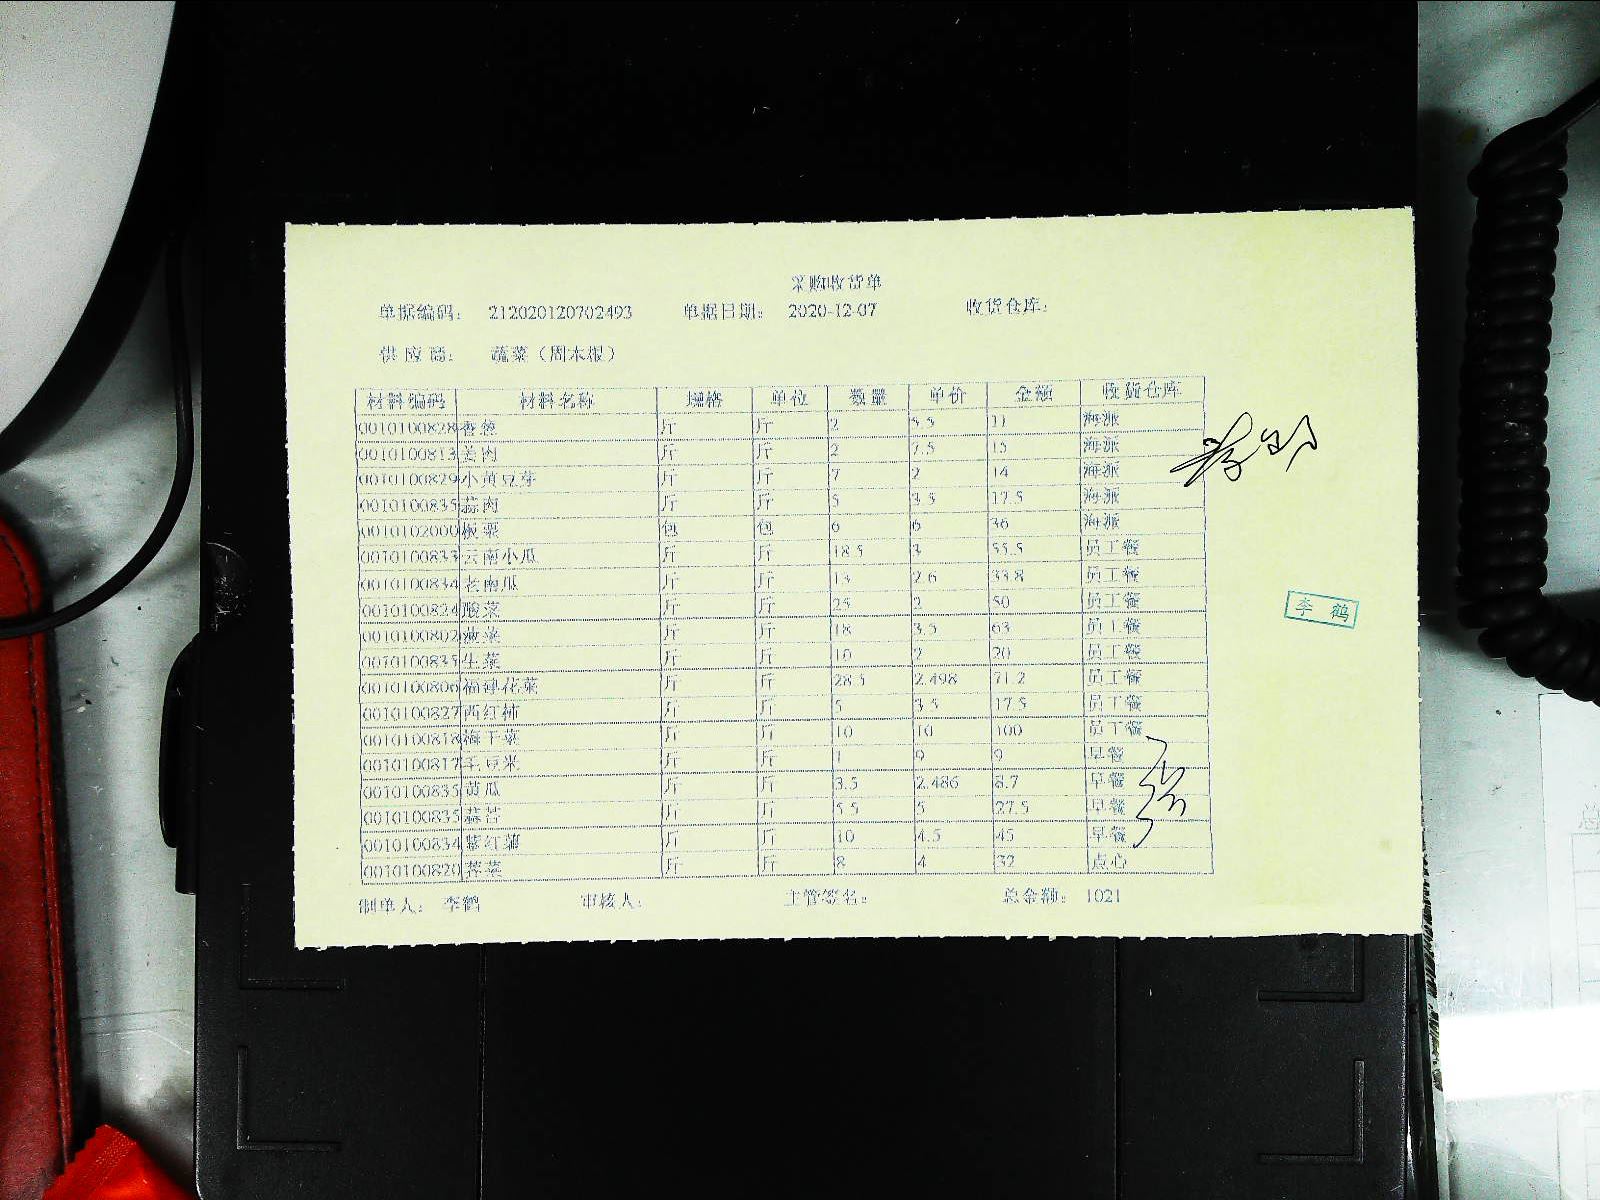 采购收货单
单据编码： 212020120702493 单据日期： 2020-12-07 收货仓库：
供 应 商： 蔬菜（周本根）
材料编码 材料名称 规格 单位 数量 单价 金额 收货仓库
0010100828 香葱 斤 斤 2 5.5 11 海派
0010100813 姜肉 斤 斤 2 7.5 15 海派
0010100829 小黄豆芽 斤 斤 7 2 14 海派
0010100835 蒜肉 斤 斤 5 3.5 17.5 海派
0010102000 板栗 包 包 6 6 36 海派
0010100833 云南小瓜 斤 斤 18.5 3 55.5 员工餐
0010100834 老南瓜 斤 斤 13 2.6 33.8 员工餐
0010100824 酸菜 斤 斤 25 2 50 员工餐
0010100802 菠菜 斤 斤 18 3.5 63 员工餐
0010100835 生菜 斤 斤 10 2 20 员工餐
0010100806 福建花菜 斤 斤 28.5 2.498 71.2 员工餐
0010100827 西红柿 斤 斤 5 3.5 17.5 员工餐
0010100818 梅干菜 斤 斤 10 10 100 员工餐
0010100817 毛豆米 斤 斤 1 9 9 早餐
0010100835 黄瓜 斤 斤 3.5 2.486 8.7 早餐
0010100835 蒜苔 斤 斤 5.5 5 27.5 早餐
0010100834 紫红薯 斤 斤 10 4.5 45 早餐
0010100820 荠菜 斤 斤 8 4 32 点心
制单人： 李鹤 审核人： 主管签名： 总金额： 1021
李 鹤